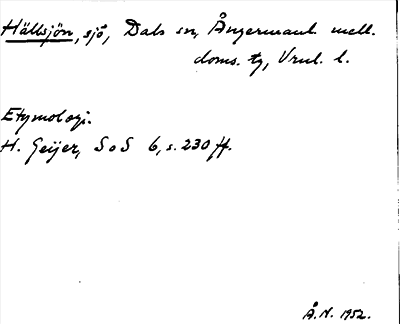 Hällsjön, sjö, Dals sn, Ångermanl. mell.
doms. tg, Vrnl. l.
Etymologi.
H. Geijer, SoS 6, s. 230 ff.
Å. N. 1952.